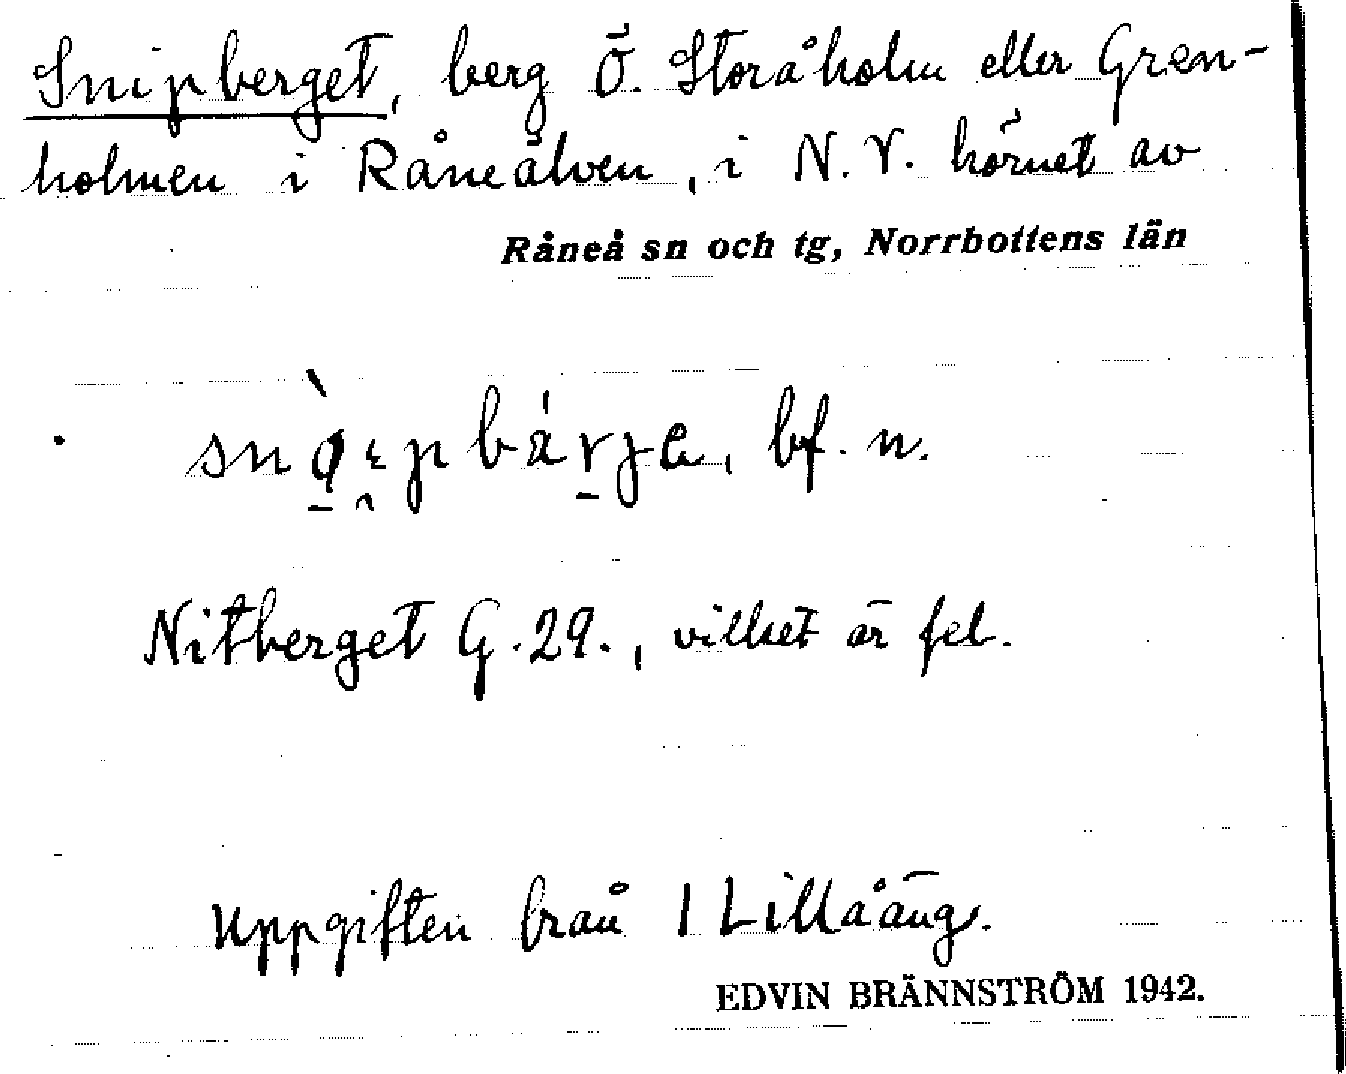 Snipberget, berg Ö. Storåholm eller Gran-
holmen i Råneälven, i N.V. hörnet av
Råneå sn och tg, Norrbottens län
bf. n.
Nitberget G.29., vilket är fel.
Uppgiften från 1 Lillåäng.
EDVIN BRÄNNSTRÖM 1942.